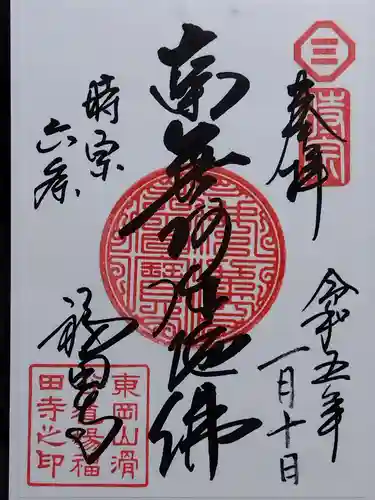 三
時宗
奉拝
令和五年
一月十日
南無阿弥陀佛
時宗
六条
福田寺
東岡山滑
道場福
田寺之印